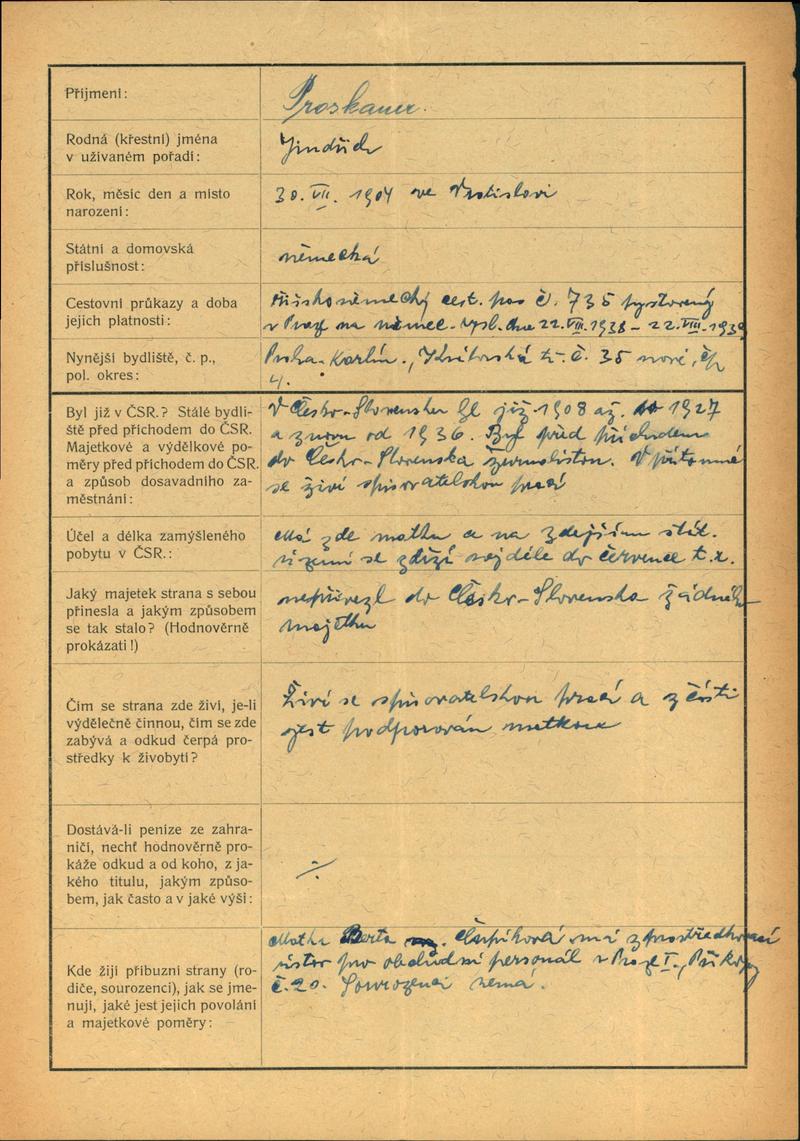 Příjmení: Proskauer.
Rodná (křestní) jména
v užívaném pořadí: Jindřich
Rok, měsíc den a místo
narození: 30. VII. 1904 ve Vratislavi
Státní a domovská
příslušnost: německá
Cestovní průkazy a doba
jejich platnosti:
říšskoněmecký cest. pas č. 735 vystavený
v Praze na němec. vysl. dne 22. VIII. 1938 – 22. VIII. 1939
Nynější bydliště, č. p.,
pol. okres:
Praha - Karlín., tř. č. 35 nové, čp
4.
Byl již v ČSR.? Stálé bydli-
ště před příchodem do ČSR.
Majetkové a výdělkové po-
měry před příchodem do ČSR.
a způsob dosavadního za-
městnání:
V Česko-Slovensku byl již 1908 až 1927
a znovu od 1936. Byl před příchodem
do Česko-Slovenska žurnalistou. V přítomné
se živí spisovatelskou prací
Účel a délka zamýšleného
pobytu v ČSR.:
Má zde matku a na zdejším stát.
území se zdrží nejdéle do července t. r.
Jaký majetek strana s sebou
přinesla a jakým způsobem
se tak stalo? (Hodnověrně
prokázati!)
nepřivezl do Česko-Slovenska žádného
majetku
Čím se strana zde živí, je-li
výdělečně činnou, čím se zde
zabývá a odkud čerpá pro-
středky k živobytí?
Živí se spisovatelskou prací a z části
jest podporován matkou
Dostává-li peníze ze zahra-
ničí, nechť hodnověrně pro-
káže odkud a od koho, z ja-
kého titulu, jakým způso-
bem, jak často a v jaké výši:
÷
Kde žijí příbuzní strany (ro-
diče, sourozenci), jak se jme-
nují, jaké jest jejich povolání
a majetkové poměry:
Matka Berta má zprostředkovací
ústav pro obchodní personál v Praze I., Příkopy
č. 20. Sourozenců nemá.